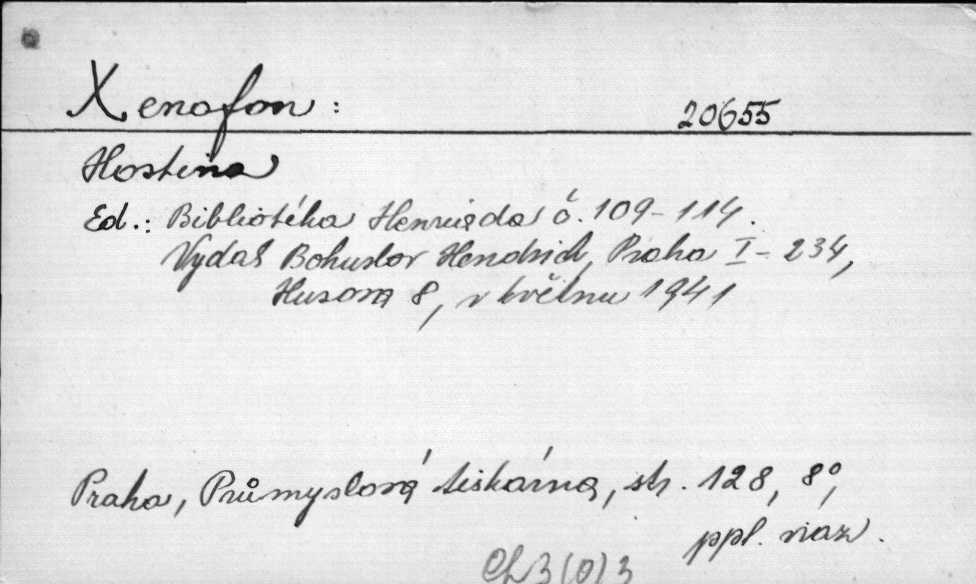 Xenofon:
20655
Hostina
Ed.: Bibliotéka Henrieda č. 109-114.
Vydal Bohuslav Hendrich, Praha I-234,
Husova 8, v květnu 1941
Praha, Průmyslová tiskárna, str. 128, 8°,
ppl. viaz.
Ch 3(0)3